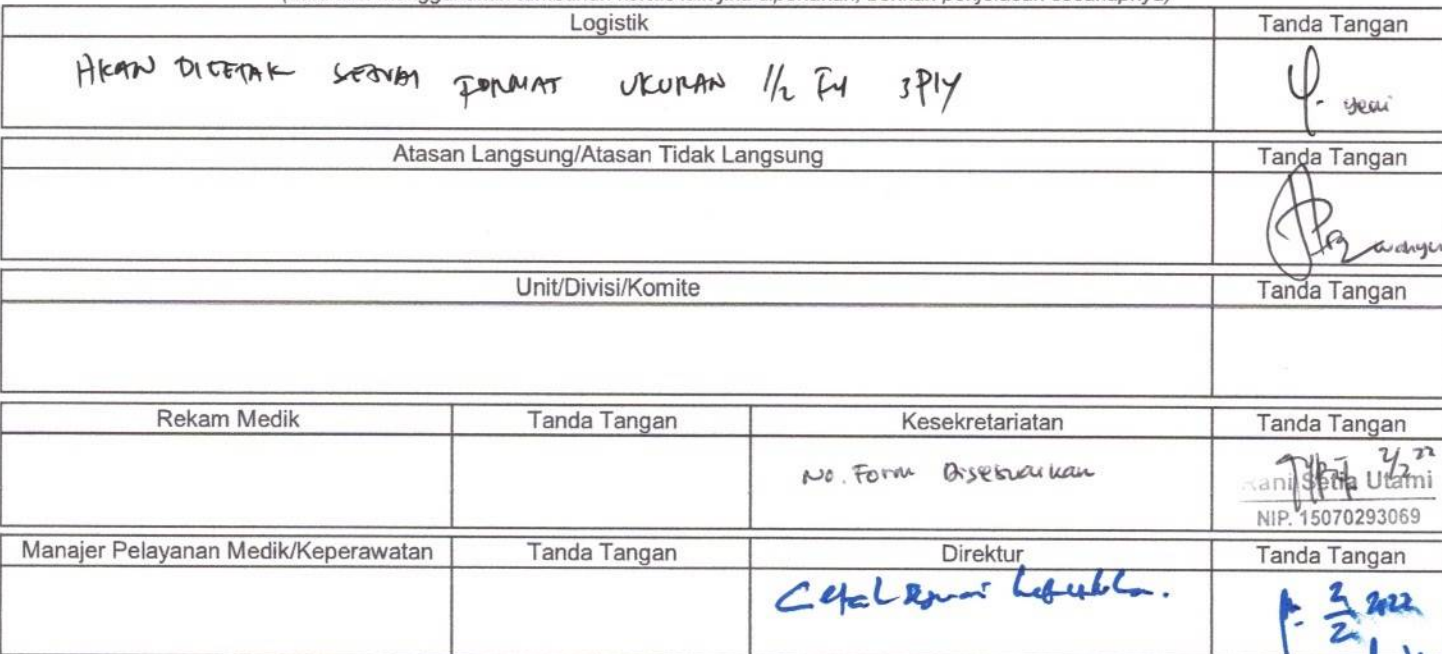 Logistik Tanda Tangan
AKAN DICETAK SESUAI FORMAT UKURAN 1/2 F4 3PLY
yeni
Atasan Langsung/Atasan Tidak Langsung Tanda Tangan
wahyu
Unit/Divisi/Komite Tanda Tangan
Rekam Medik Tanda Tangan Kesekretariatan Tanda Tangan
No. Form Disesuaikan 2/2 22
Rani Setia Utami
NIP. 15070293069
Manajer Pelayanan Medik/Keperawatan Tanda Tangan Direktur Tanda Tangan
Cetak sesuai kebutuhan.
2/2 2022